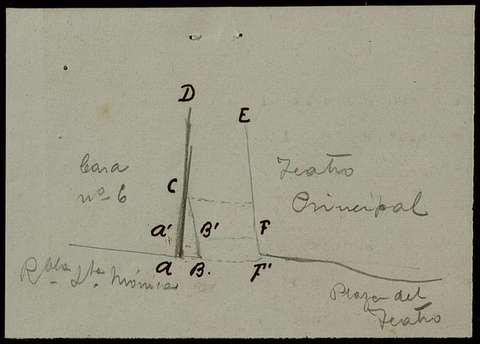 D
E
Casa
nº 6
Teatro
Principal
C
A'
B'
F
A
B.
F'
Rbla Sta Mónica
Plaza del
Teatro